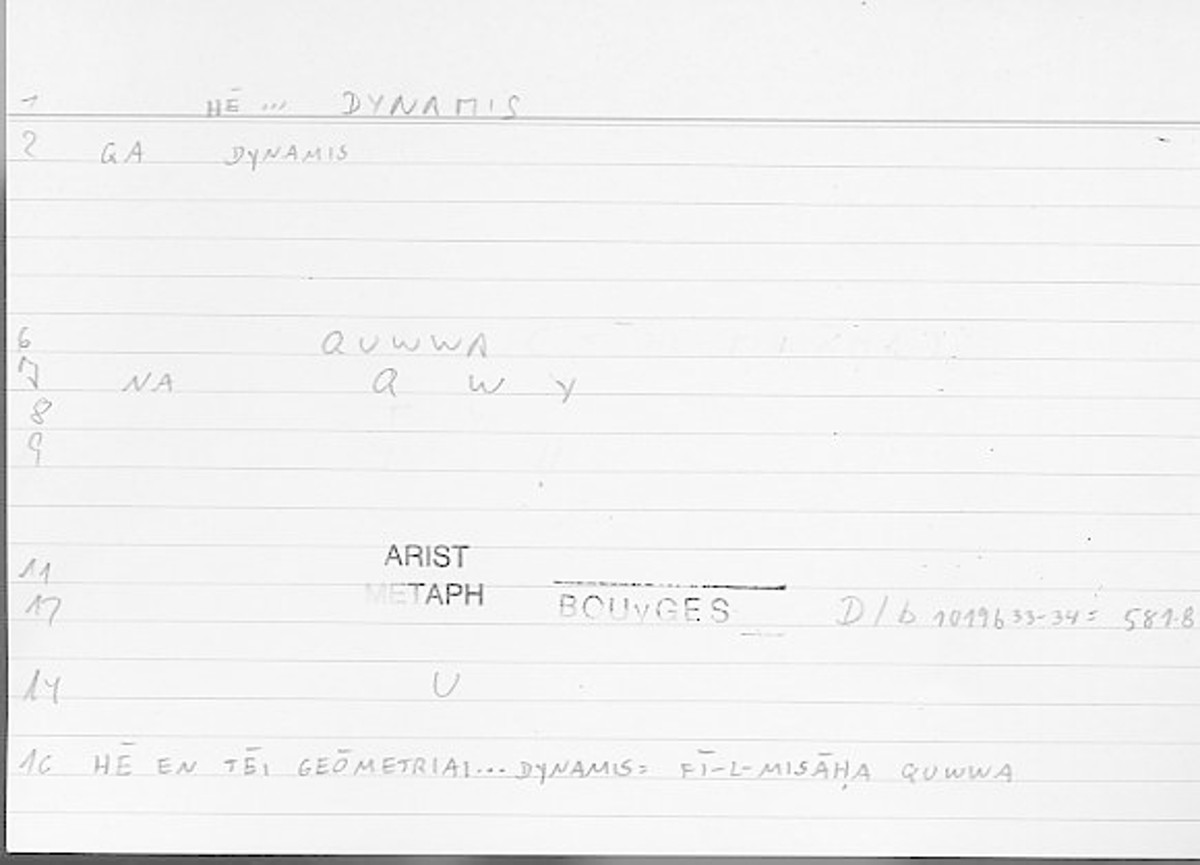 1 HĒ ... DYNAMIS
2 GA DYNAMIS
6 QUWWA
7 NA Q W Y
8
9
11 ARIST
12 METAPH BOUYGES D/b 1019b33-34= 581.8
14 U
16 HĒ EN TĒI GEŌMETRIAI... DYNAMIS= FĪ-L-MISĀḤA QUWWA